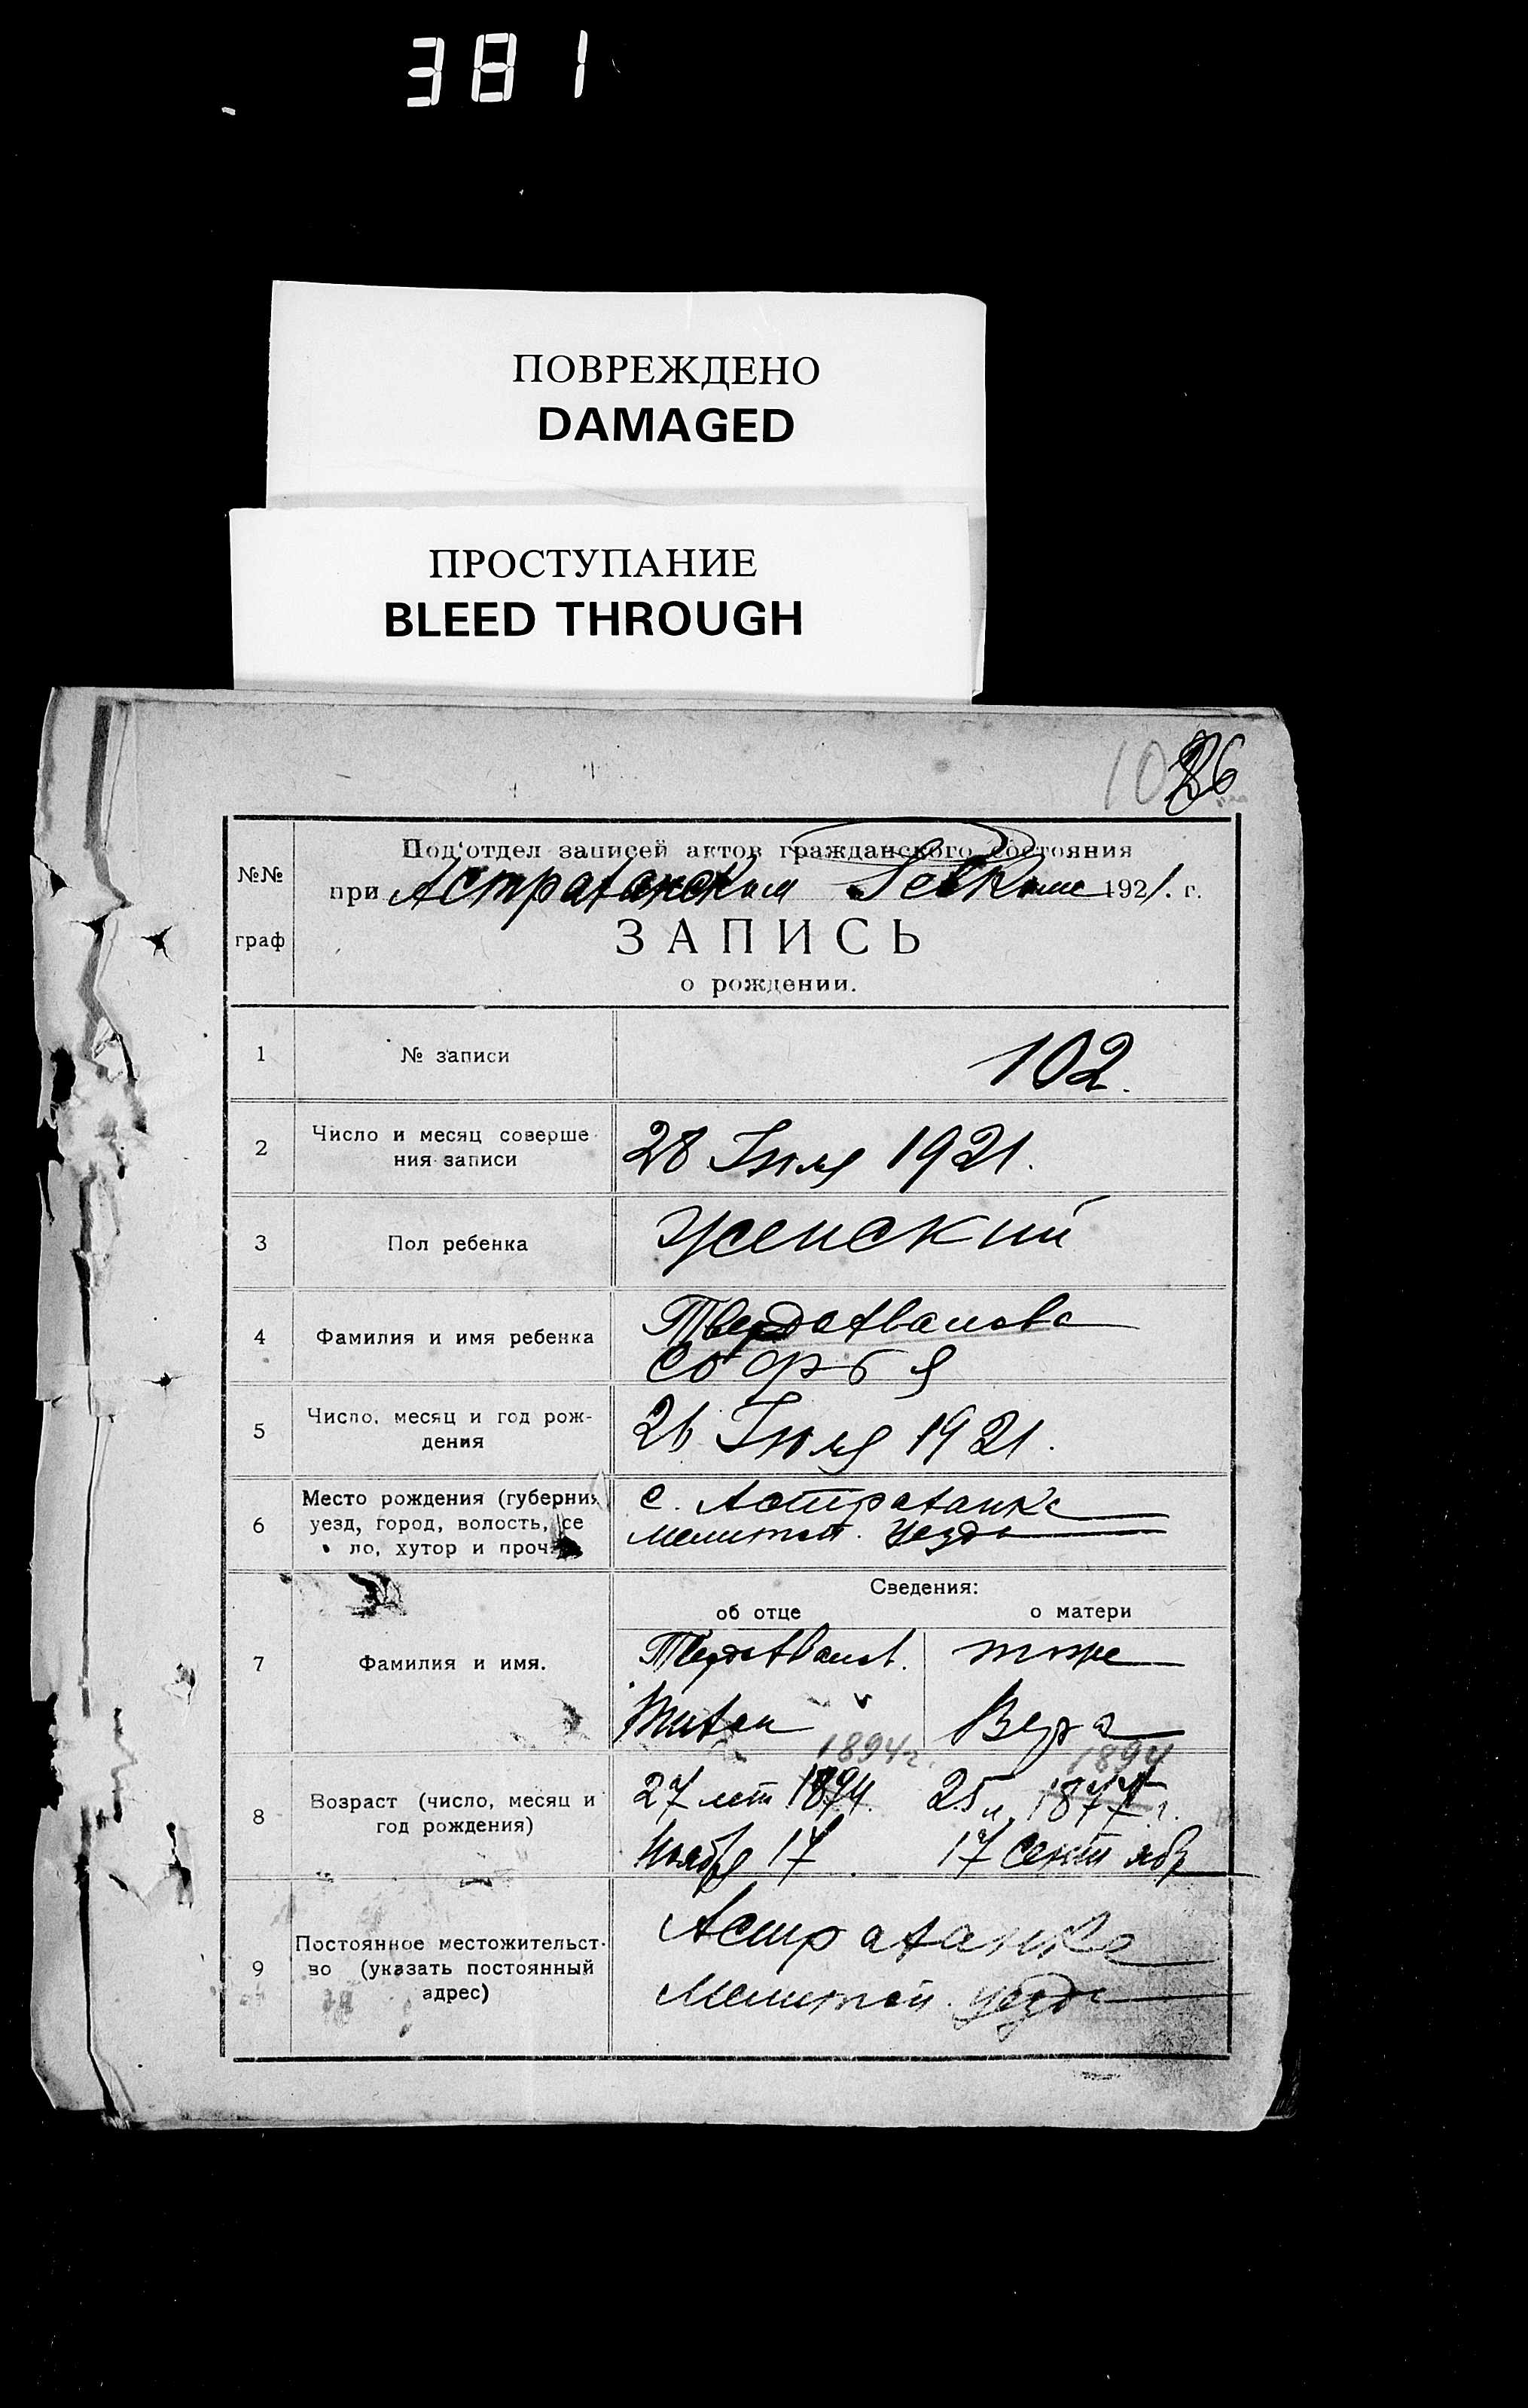 381
ПОВРЕЖДЕНО
DAMAGED
ПРОСТУПАНИЕ
BLEED THROUGH
№№
граф
Под'отдел записей актов гражданского состояния
при Астраханском 1921. г.
ЗАПИСЬ
о рождении.
1
№ записи
102.
2
Число и месяц соверше-
ния записи
28 Июля 1921.
3
Пол ребенка
Женский
4
Фамилия и имя ребенка
Твердохванова
Софья
5
Число, месяц и год рож-
дения
26 Июля 1921.
6
Место рождения (губерния
уезд, город, волость, се
ло, хутор и проч.
с. Астраханка
Мелитоп. уезда
Сведения:
об отце
о матери
7
Фамилия и имя.
Твердохванов.
тоже
Тихон
Вера
1894г.
1894
8
Возраст (число, месяц и
год рождения)
27 лет 1894.
25 л.
Ноября 17.
17 сентября
9
Постоянное местожительст-
во (указать постоянный
адрес)
Астраханка
Мелитоп. уезда